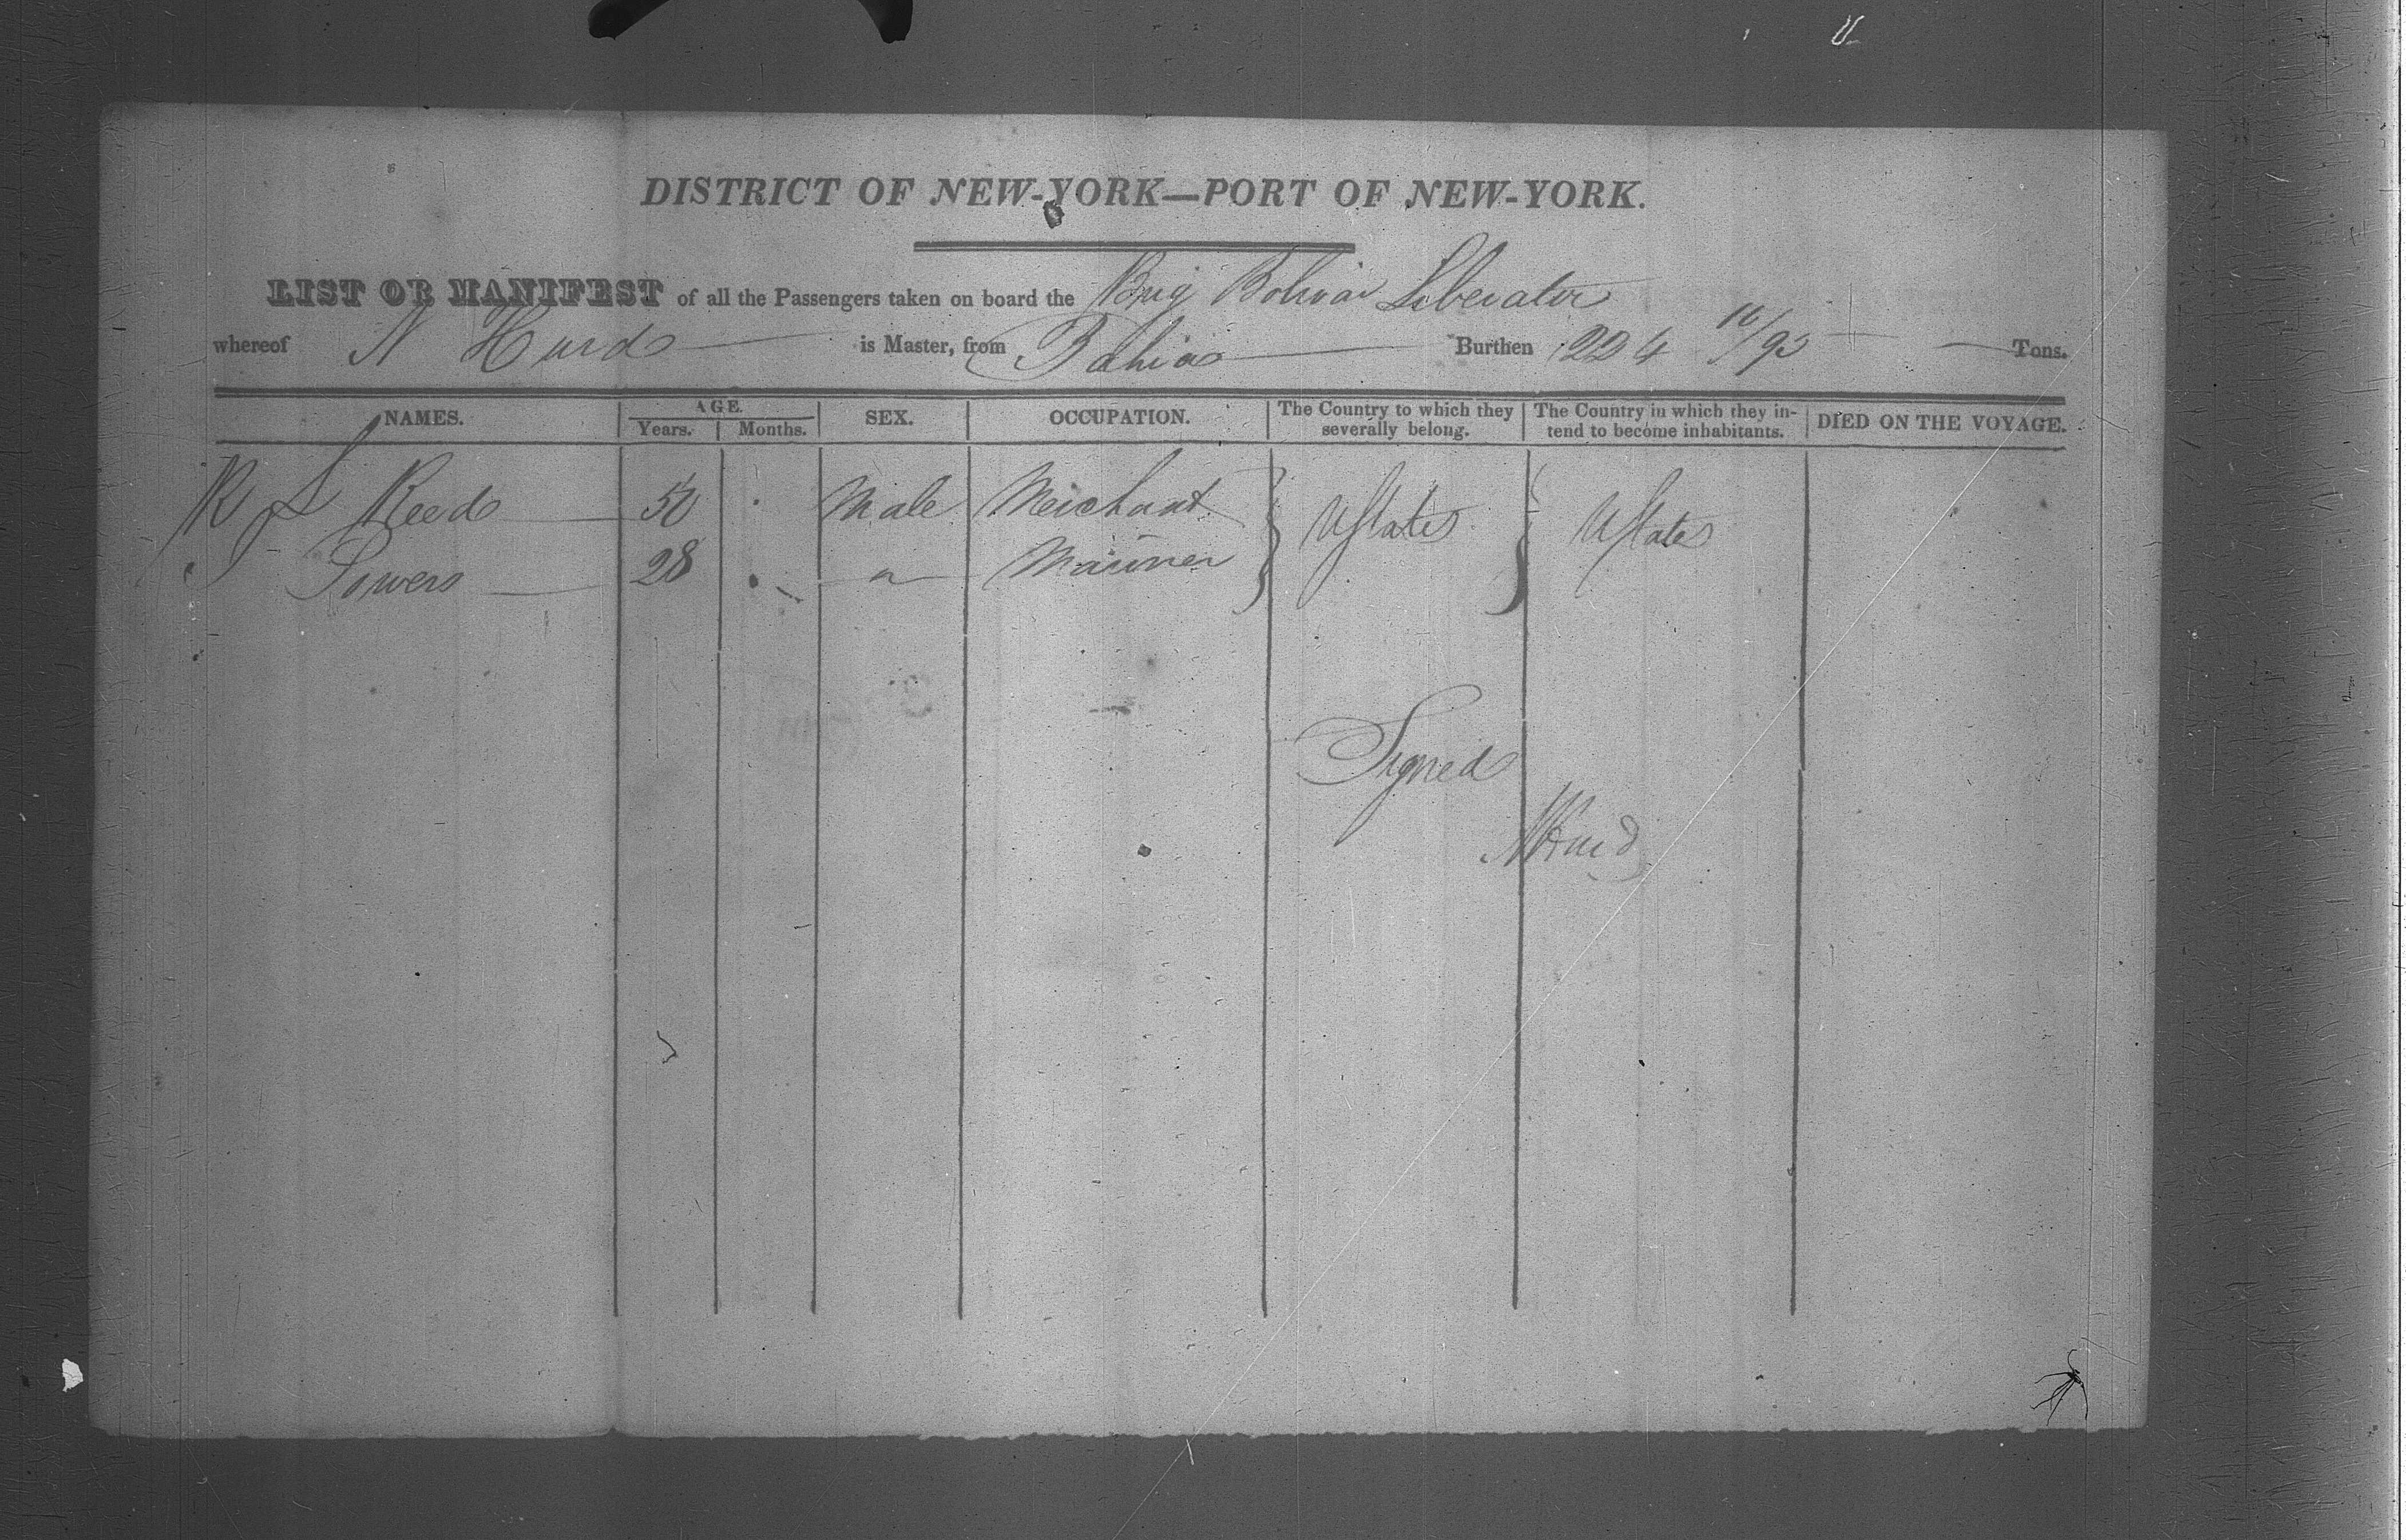 DISTRICT OF NEW-YORK—PORT OF NEW-YORK.
LIST OR MANIFEST of all the Passengers taken on board the Brig Bolivar Liberator
whereof N Hurd is Master, from Bahia Burthen 224 /95 Tons.
NAMES. AGE. Years. Months. SEX. OCCUPATION. The Country to which they severally belong. The Country in which they intend to become inhabitants. DIED ON THE VOYAGE.
R S Reed 50 Male Merchant UStates UStates
Sowers 28 " Mariner
Signed
N Hurd